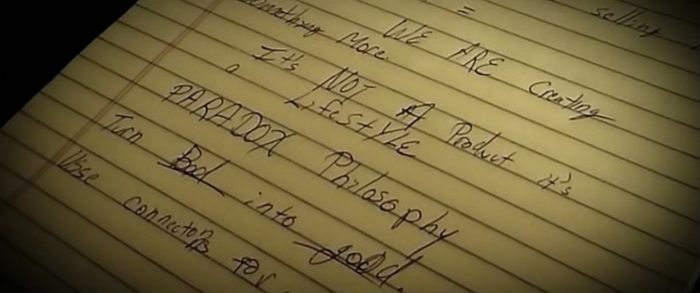 = selling
something more. WE ARE Creating
It's NOT A Product it's
LifestYLE
PARADOX Philosophy
Turn Bad into good.
Use connectors for